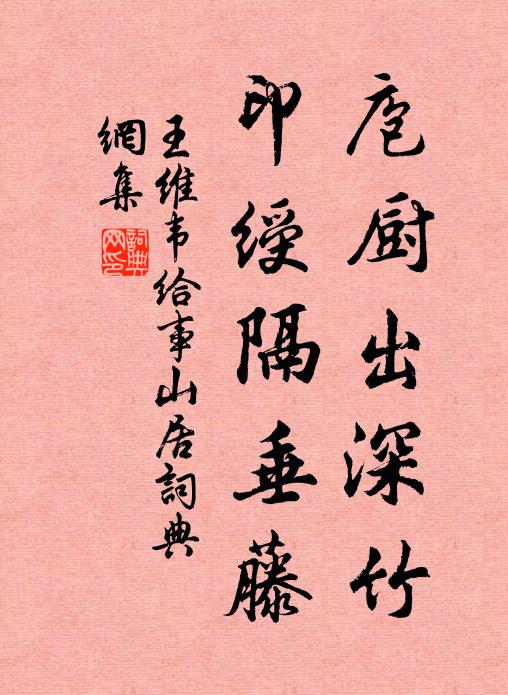 庖厨出深竹
印綬隔垂藤
王維韦給事山居詞典
網集
詞典网印